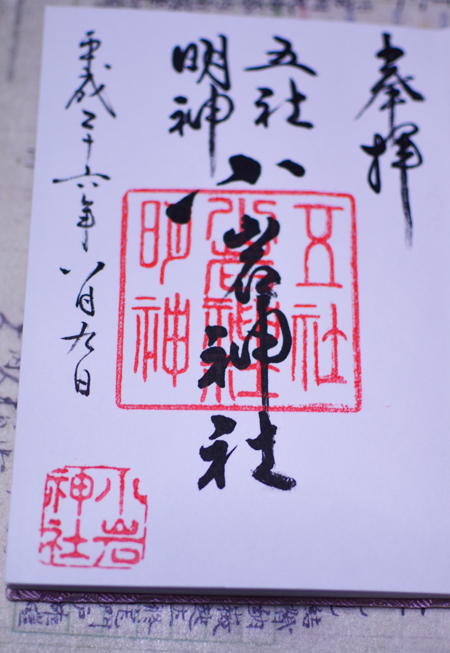 奉拝
五社
明神
小岩神社
平成二十六年八月九日
五社
小岩神社
明神
小岩
神社